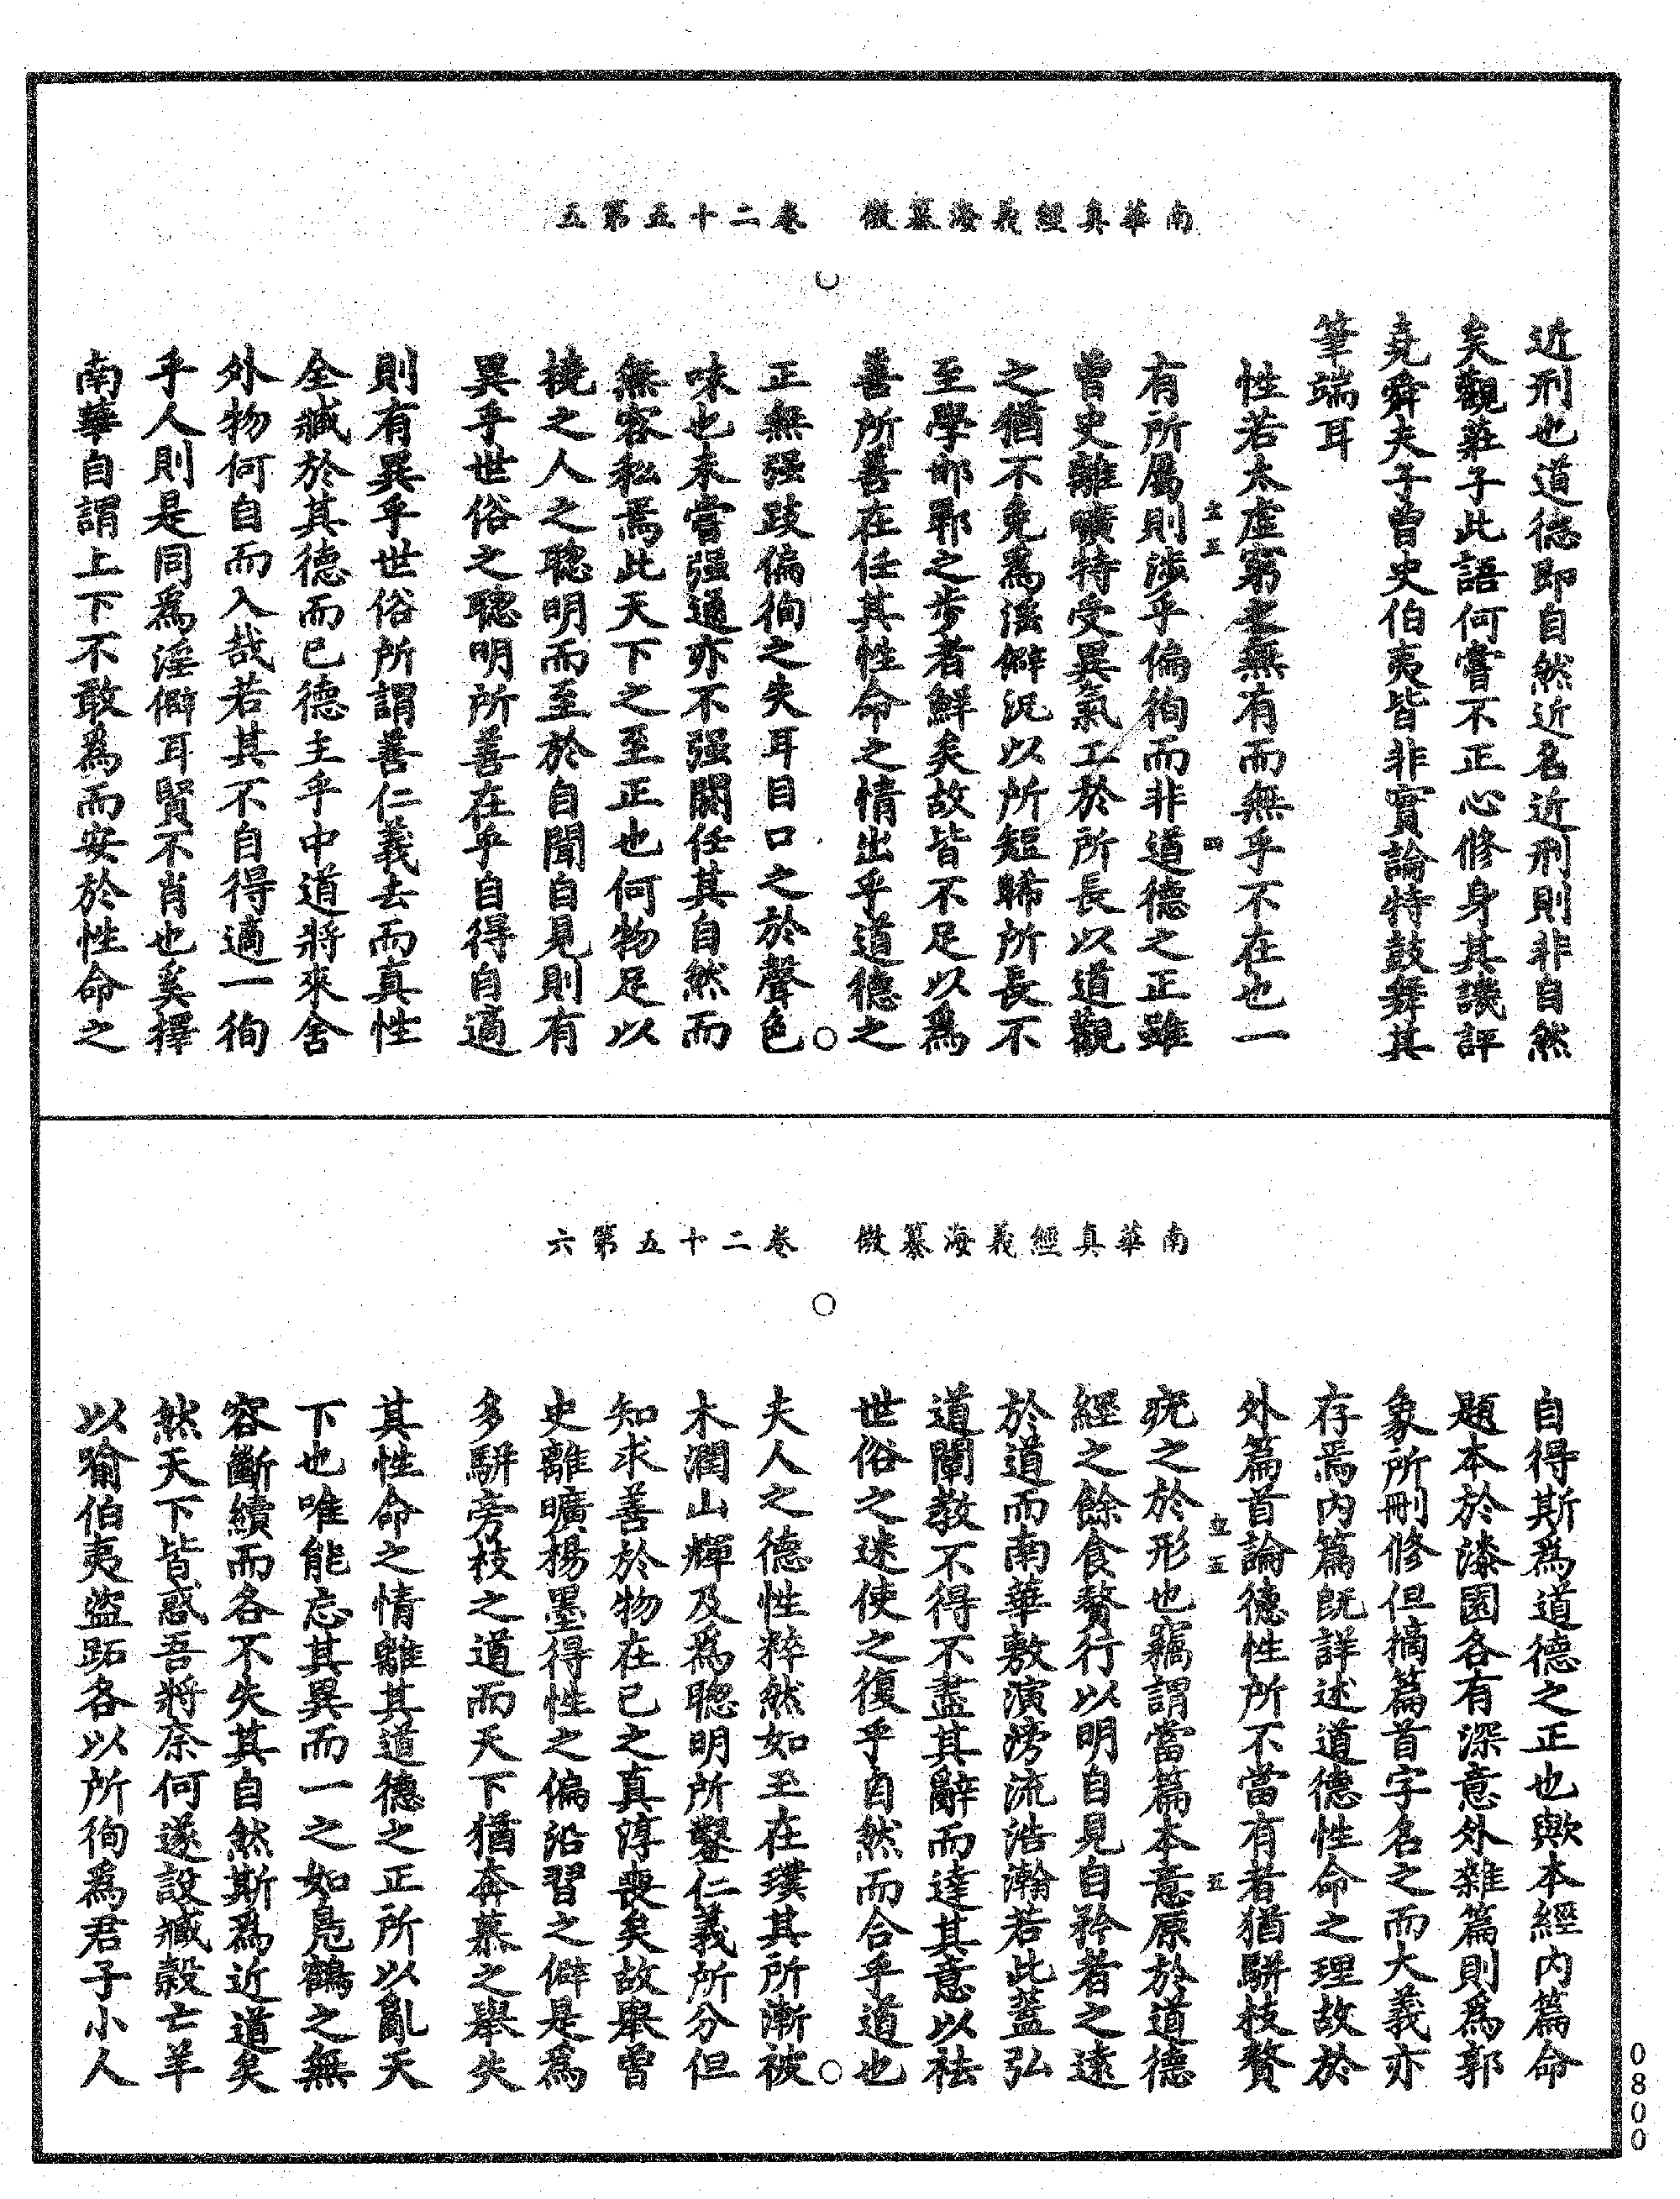 南華真經義海纂微　卷二十五第五
近刑也道德即自然近名近刑則非自然
矣觀莊子此語何嘗不正心修身其譏評
堯舜夫子曾史伯夷皆非實論特鼓舞其
筆端耳
性若太虛窮之無有而無乎不在也一
立五
四
有所屬則涉乎偏徇而非道德之正雖
曾史離曠特受異氣工於所長以道觀
之猶不免為滛僻況以所短睎所長不
至學邯鄲之步者鮮矣故皆不足以為
善所善在任其性命之情出乎道德之
正無强跂偏徇之失耳目口之於聲色
味也未嘗强通亦不强閡任其自然而
無容私焉此天下之至正也何物足以
撓之人之聰明而至於自聞自見則有
異乎世俗之聰明所善在乎自得自適
則有異乎世俗所謂善仁義去而真性
全臧於其德而已德主乎中道將來舍
外物何自而入哉若其不自得適一徇
乎人則是同為淫僻耳賢不肖也奚擇
南華自謂上下不敢為而安於性命之
南華真經義海纂微　卷二十五第六
自得斯為道德之正也歟本經內篇命
題本於漆園各有深意外雜篇則為郭
象所刪修但摘篇首字名之而大義亦
存焉內篇旣詳述道德性命之理故於
外篇首論德性所不當有者猶駢枝贅
立五
五
疣之於形也竊謂當篇本意原於道德
經之餘食贅行以明自見自矜者之遠
於道而南華敷演滂流浩瀚若此蓋弘
道闡教不得不盡其辭而達其意以祛
世俗之迷使之復乎自然而合乎道也
夫人之德性粹然如玉在璞其所漸被
木潤山輝及為聰明所鑿仁義所分但
知求善於物在己之真淳喪矣故舉曾
史離曠揚墨得性之偏沿習之僻是為
多駢旁枝之道而天下猶奔慕之舉失
其性命之情離其道德之正所以亂天
下也唯能忘其異而一之如鳧鶴之無
容斷續而各不失其自然斯為近道矣
然天下皆惑吾將奈何遂設臧穀亡羊
以喻伯夷盜跖各以所徇為君子小人
0800